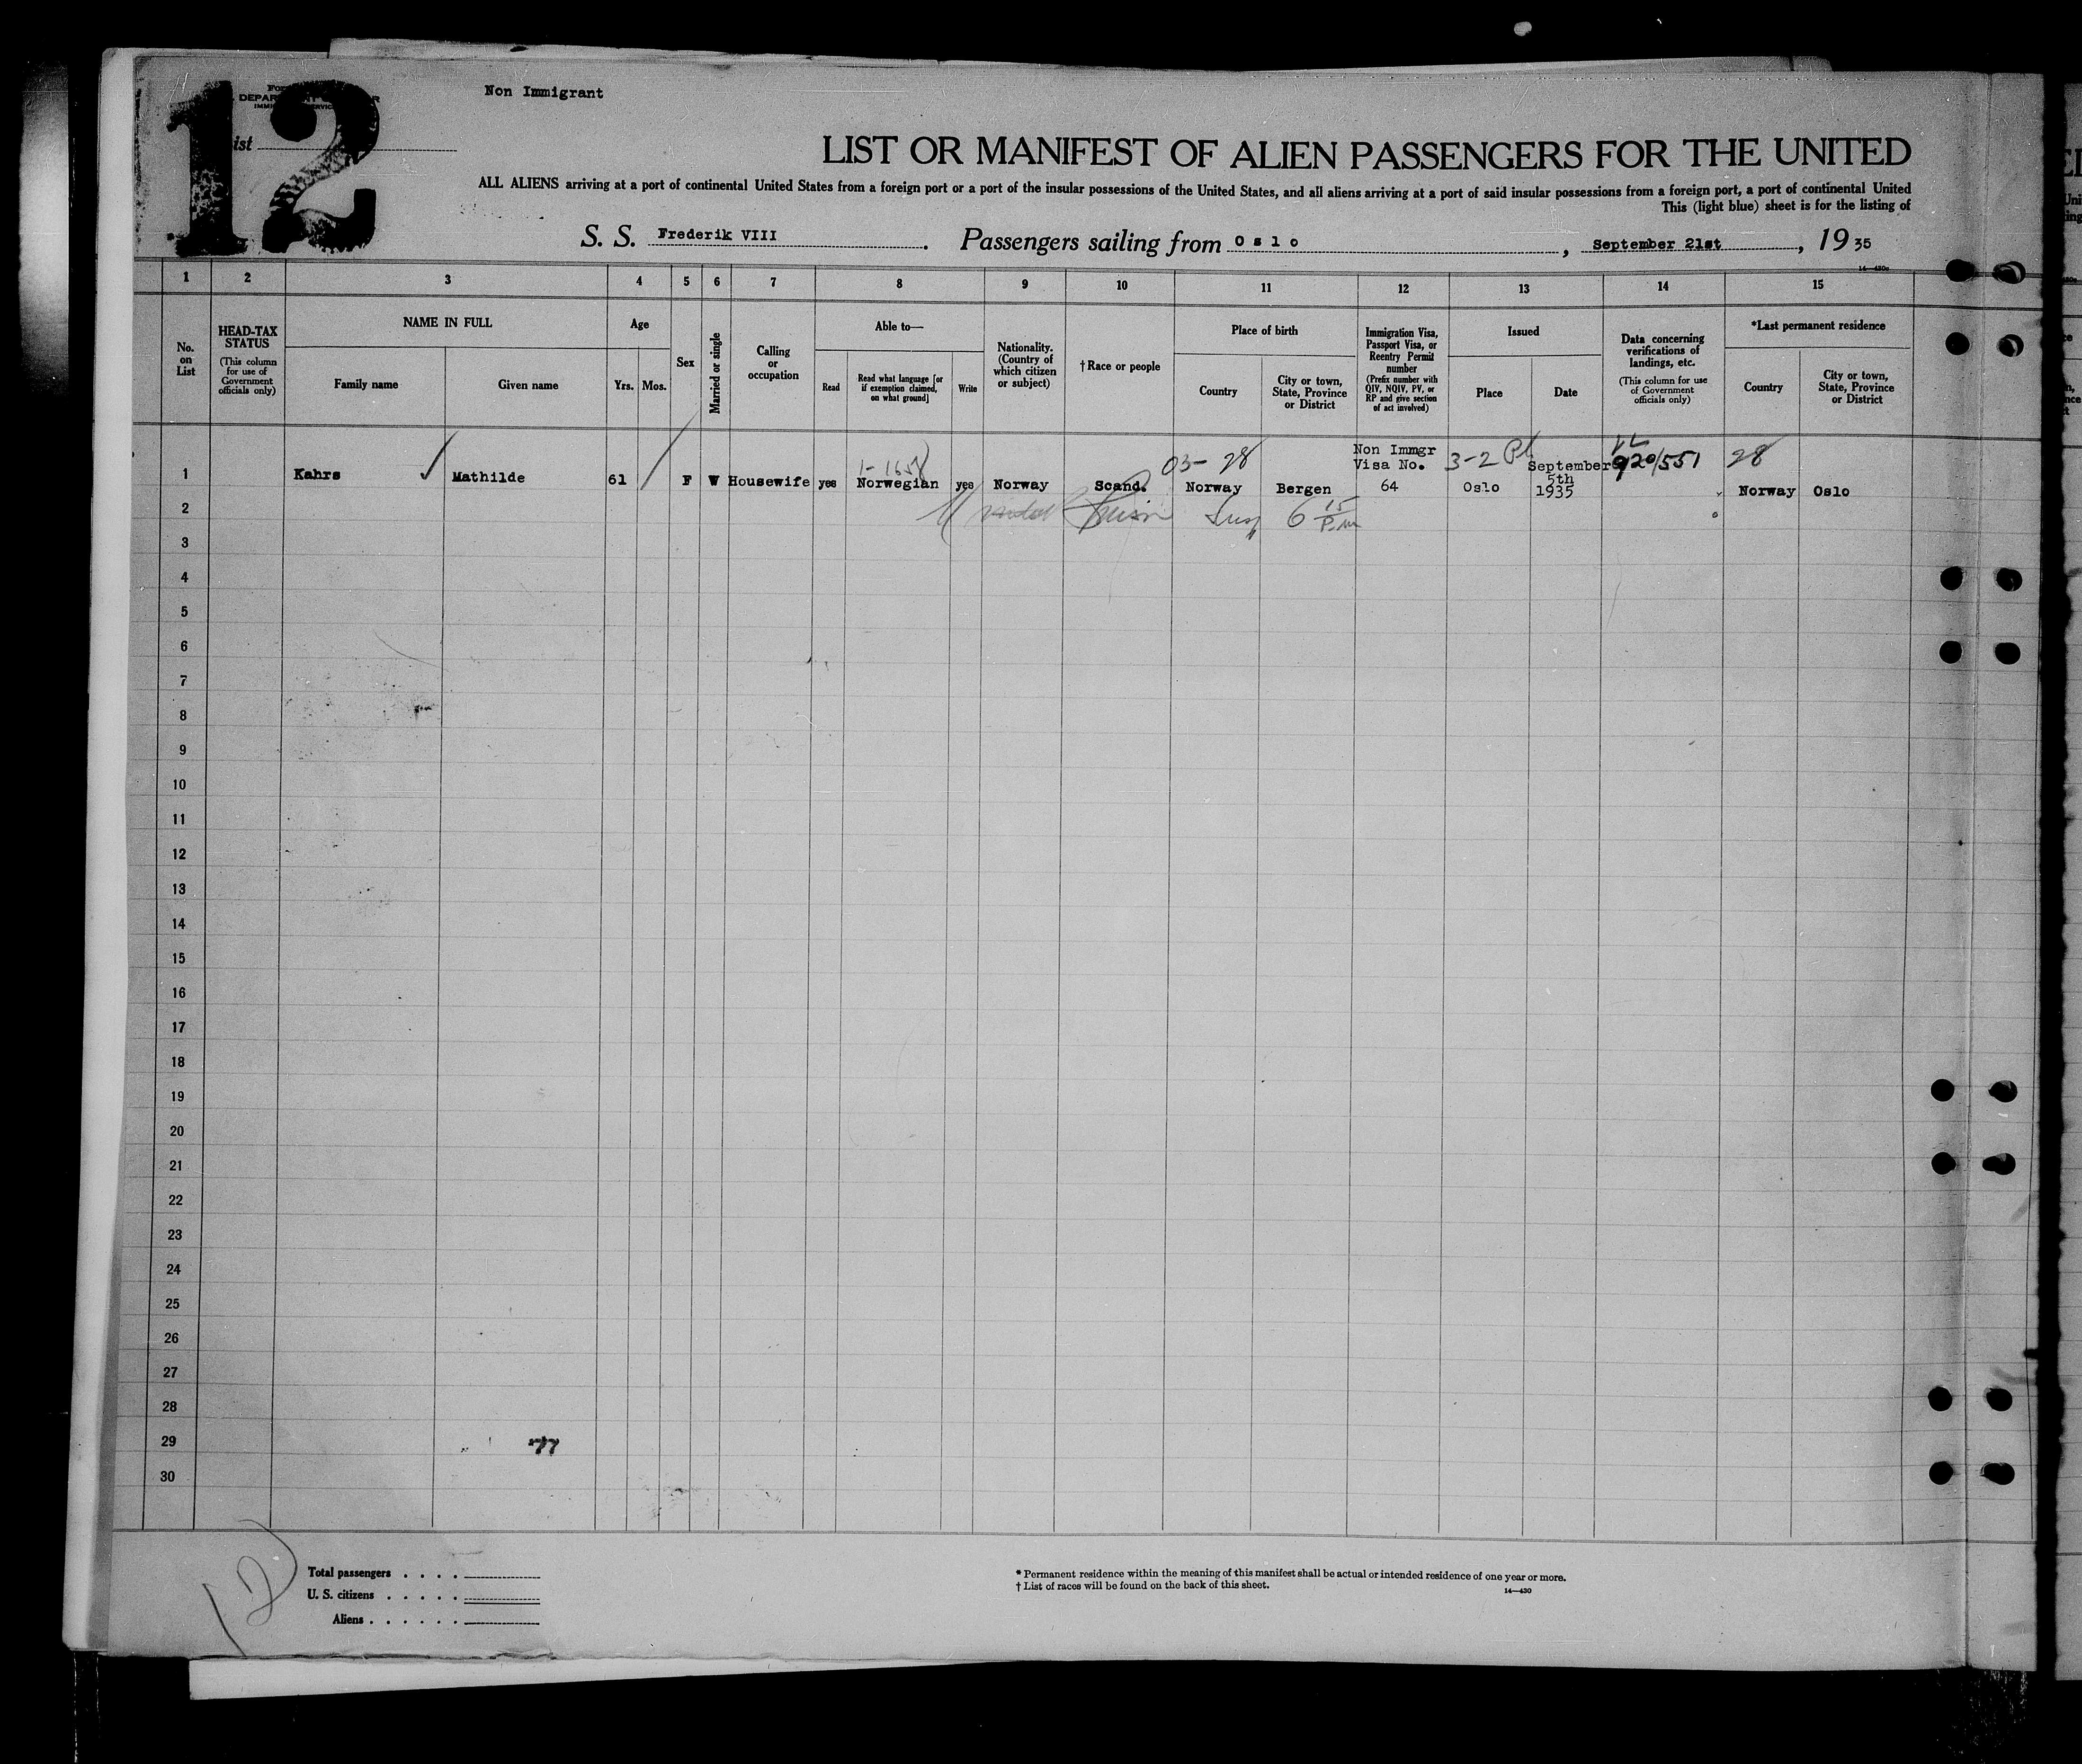 12
Non Immigrant
LIST OR MANIFEST OF ALIEN PASSENGERS FOR THE UNITED
ALL ALIENS arriving at a port of continental United States from a foreign port or a port of the insular possessions of the United States, and all aliens arriving at a port of said insular possessions from a foreign port, a port of continental United
This (light blue) sheet is for the listing of
S. S. Frederik VIII. Passengers sailing from Oslo, September 21st, 1935
1 2 3 4 5 6 7 8 9 10 11 12 13 14 15
No. on List
HEAD-TAX STATUS (This column for use of Government officials only)
NAME IN FULL
Family name
Given name
Age
Yrs. Mos.
Sex
Married or single
Calling or occupation
Able to—
Read
Read what language [or if exemption claimed, on what ground]
Write
Nationality. (Country of which citizen or subject)
† Race or people
Place of birth
Country
City or town, State, Province or District
Immigration Visa, Passport Visa, or Reentry Permit number (Prefix number with QIV, NQIV, PV, or RP and give section of act involved)
Issued
Place
Date
Data concerning verifications of landings, etc. (This column for use of Government officials only)
*Last permanent residence
Country
City or town, State, Province or District
03- 28 3-2 920/551 28
1 Kahrs Mathilde 61 F W Housewife yes Norwegian yes Norway Scand. Norway Bergen Non Immgr Visa No. 64 Oslo September 5th 1935 Norway Oslo
2 6 15 P.m
3
4
5
6
7
8
9
10
11
12
13
14
15
16
17
18
19
20
21
22
23
24
25
26
27
28
29 77
30
12
Total passengers
U. S. citizens
Aliens
* Permanent residence within the meaning of this manifest shall be actual or intended residence of one year or more.
† List of races will be found on the back of this sheet.
14—430